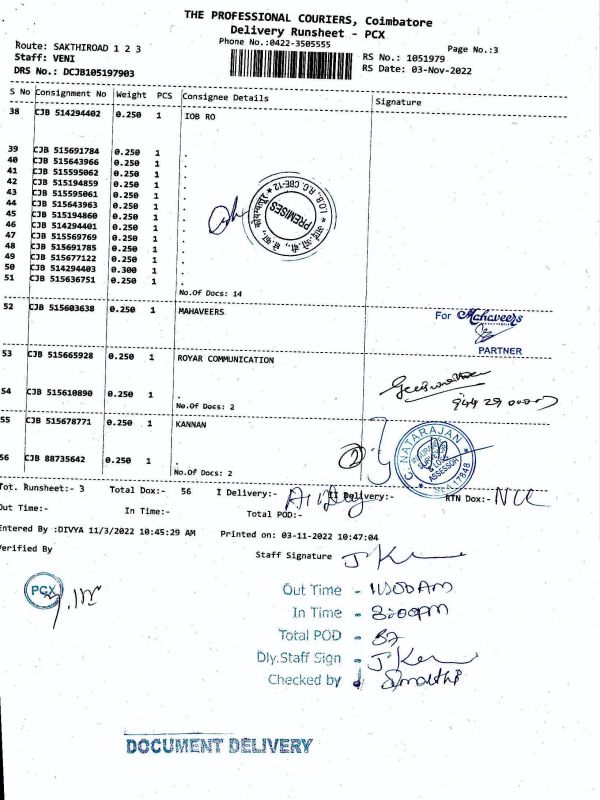 THE PROFESSIONAL COURIERS, Coimbatore
Delivery Runsheet - PCX
Phone No.:0422-3505555
Page No.:3
Route: SAKTHIROAD 1 2 3
Staff: VENI
DRS No.: DCJB105197903
RS No.: 1051979
RS Date: 03-Nov-2022
S No Consignment No Weight PCS Consignee Details Signature
38 CJB 514294402 0.250 1 IOB RO
39 CJB 515691784 0.250 1 .
40 CJB 515643966 0.250 1 .
41 CJB 515595062 0.250 1 .
42 CJB 515194859 0.250 1 .
43 CJB 515595061 0.250 1 .
44 CJB 515643963 0.250 1 .
45 CJB 515194860 0.250 1 .
46 CJB 514294401 0.250 1 .
47 CJB 515569769 0.250 1 .
48 CJB 515691785 0.250 1 .
49 CJB 515677122 0.250 1 .
50 CJB 514294403 0.300 1 .
51 CJB 515636751 0.250 1 .
I.O.B., R.O. CBE-12.
PREMISES
No.Of Docs: 14
52 CJB 515603638 0.250 1 MAHAVEERS
For Mahaveers
PARTNER
53 CJB 515665928 0.250 1 ROYAR COMMUNICATION
54 CJB 515610890 0.250 1 .
No.Of Docs: 2
55 CJB 515678771 0.250 1 KANNAN
56 CJB 88735642 0.250 1 .
No.Of Docs: 2
2
C. NATARAJAN
INSURANCE
SURVEYOR
& LOSS
ASSESSOR
Tot. Runsheet:- 3 Total Dox:- 56 I Delivery:- II Delivery:- RTN Dox:-
Out Time:- In Time:- Total POD:-
Entered By :DIVYA 11/3/2022 10:45:29 AM Printed on: 03-11-2022 10:47:04
Verified By Staff Signature
PCX
Out Time - 11:00AM
In Time - 3:00pm
Total POD - 37
Dly.Staff Sign -
Checked by
DOCUMENT DELIVERY